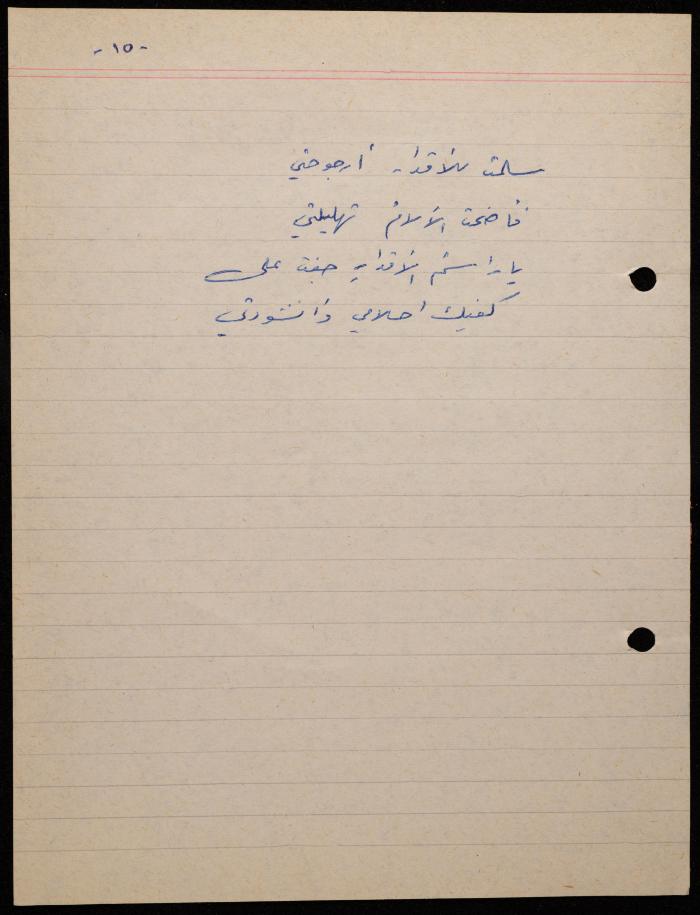 - ١٥ -
سلمت للأقدار أرجوحتي
فأضحت الآلام تهليلتي
يا راسم الأقدار جفت على
كفيك احلامي وانشودتي